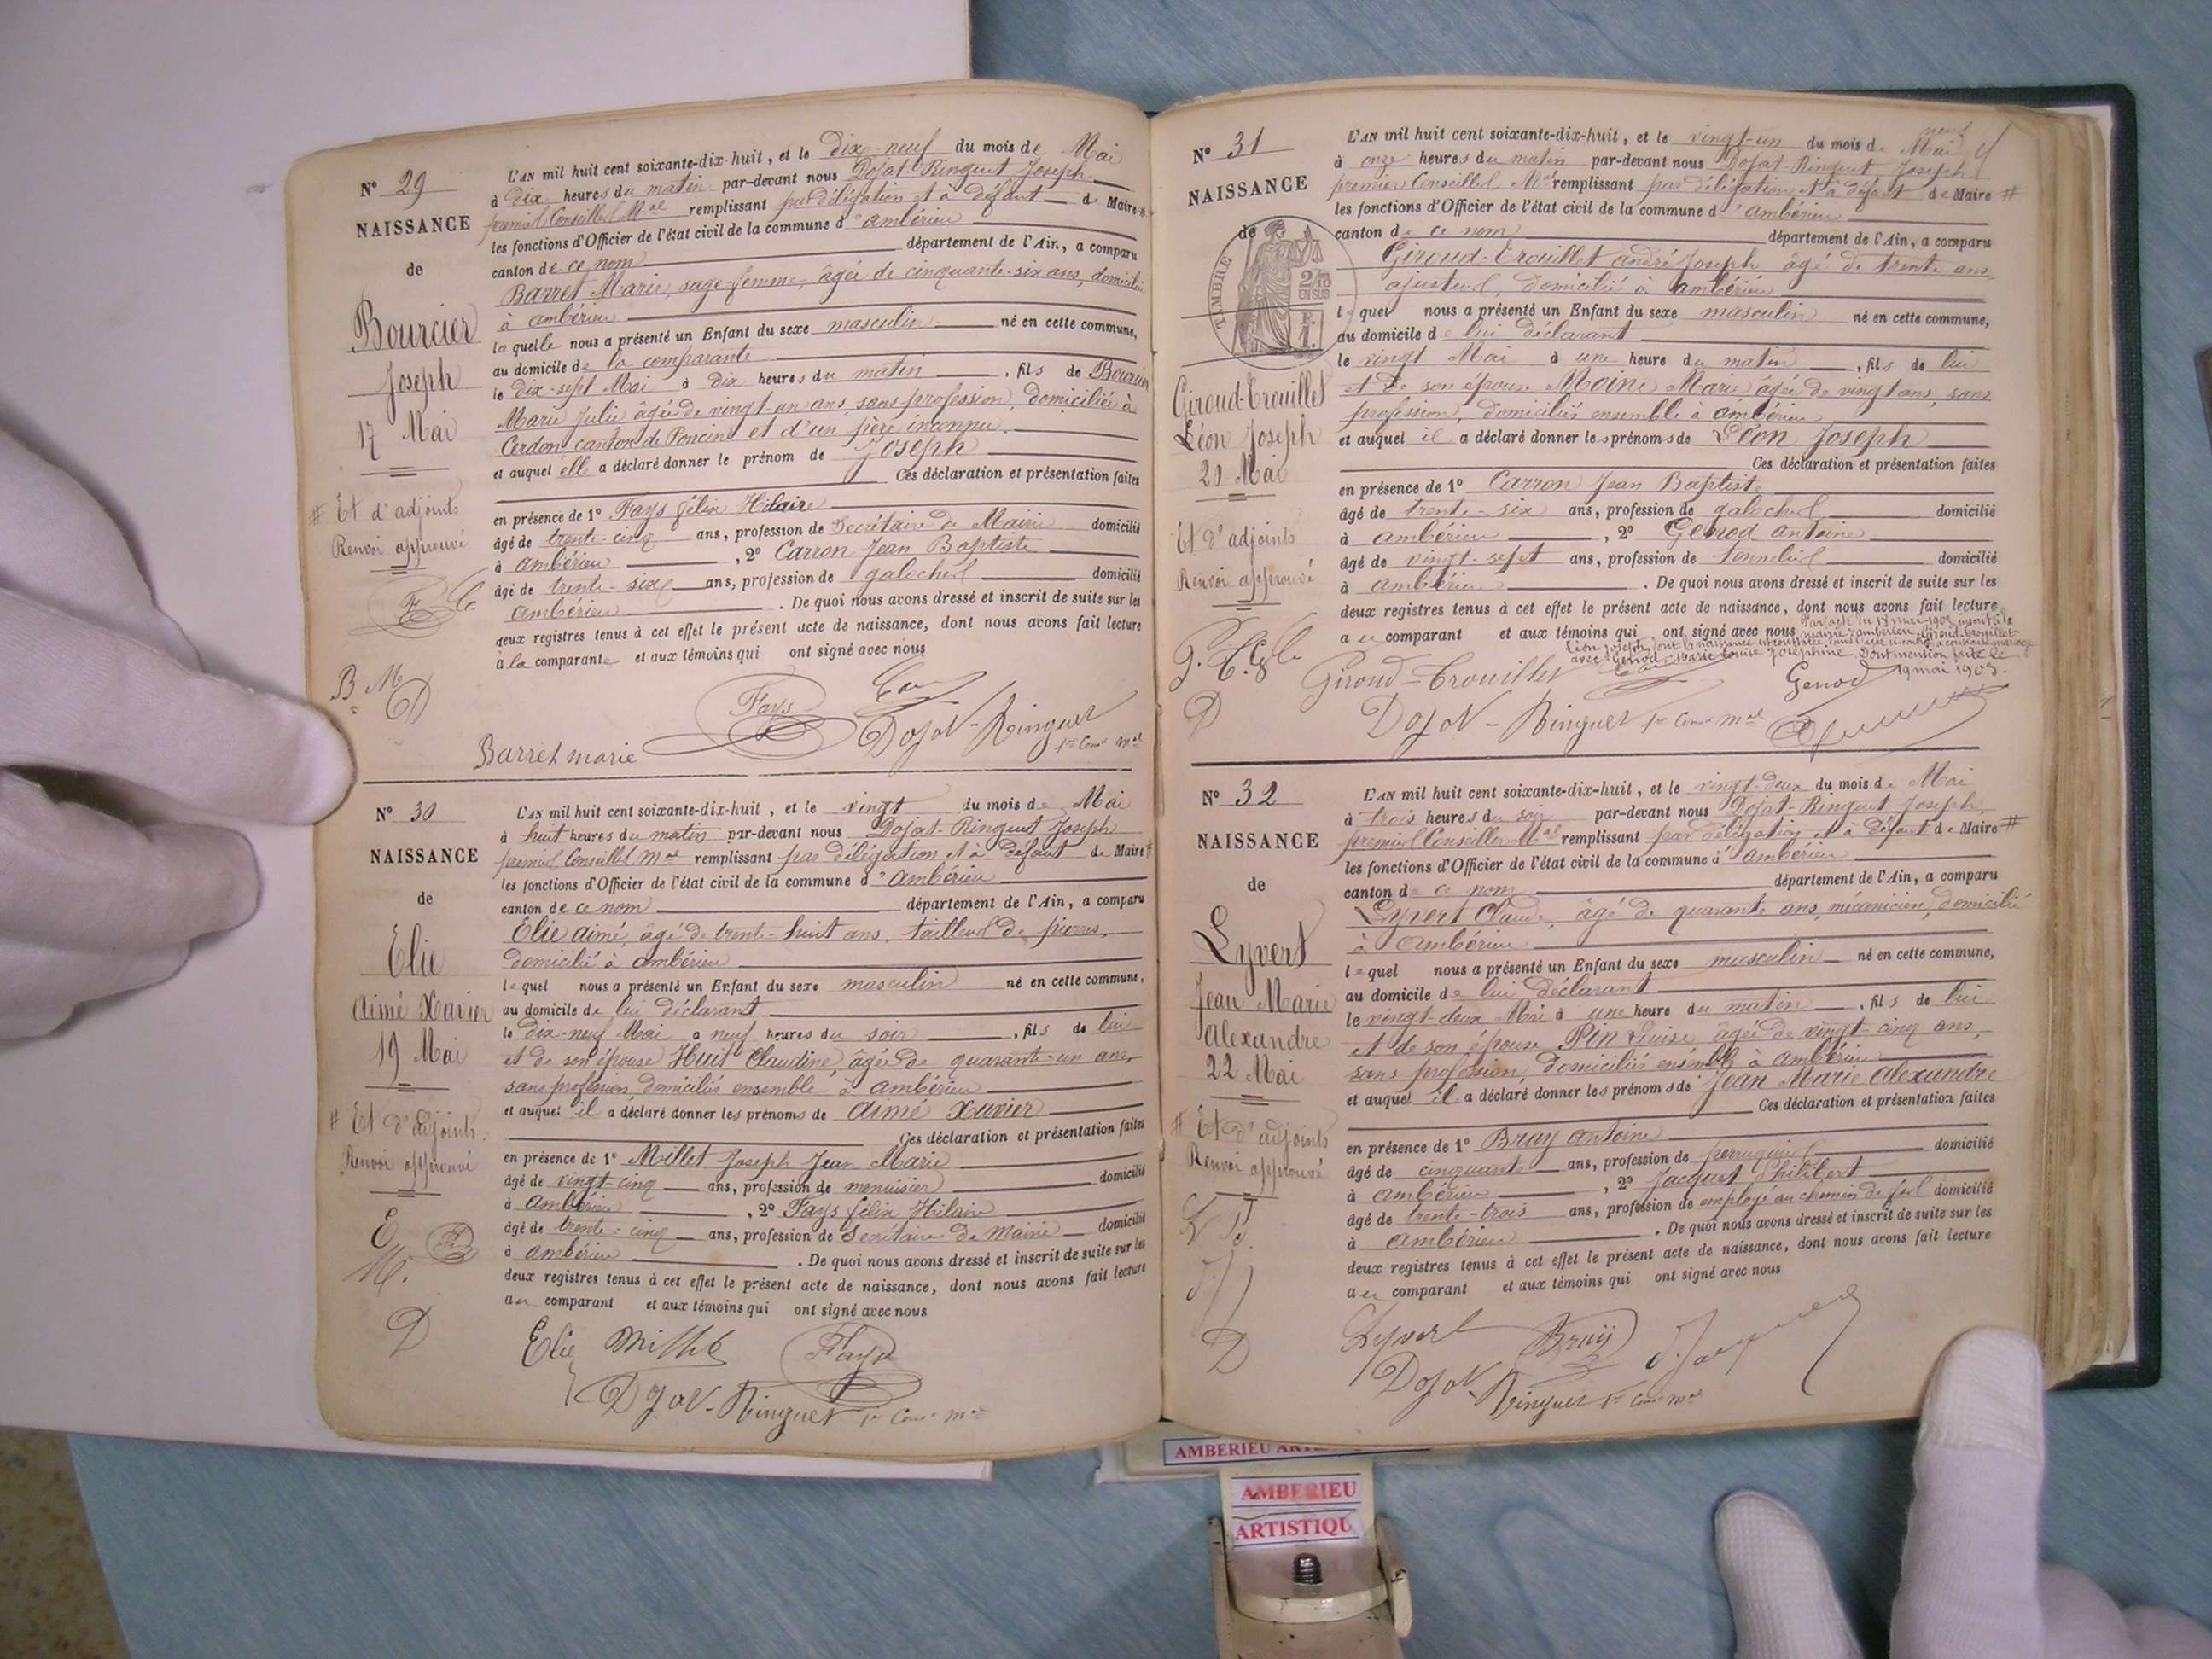 N° 29
NAISSANCE
de
Bourcier
Joseph
17 Mai
# Et d'adjoints
Renvoi approuvé
F C
B M
D
L'AN mil huit cent soixante-dix-huit, et le dix-neuf du mois de Mai
à dix heures du matin par-devant nous Dojat-Ringuet Joseph
premier Conseiller Mal remplissant par délégation et à défaut de Maire #
les fonctions d'Officier de l'état civil de la commune d'ambérieu
canton de ce nom département de l'Ain, a comparu
Barret Marie, sage-femme, âgée de cinquante-six ans, domiciliée
à ambérieu
laquelle nous a présenté un Enfant du sexe masculin né en cette commune,
au domicile de la comparante
le dix-sept Mai à dix heures du matin, fils de Bourcier
Marie Julie âgée de vingt-un ans, sans profession, domiciliée à
Cerdon canton de Poncin et d'un père inconnu.
et auquel elle a déclaré donner le prénom de Joseph
Ces déclaration et présentation faites
en présence de 1° Fays félix Hilaire
âgé de trente-cinq ans, profession de Secrétaire de Mairie domicilié
à ambérieu, 2° Carron Jean Baptiste
âgé de trente-six ans, profession de galocheur domicilié
ambérieu. De quoi nous avons dressé et inscrit de suite sur les
deux registres tenus à cet effet le présent acte de naissance, dont nous avons fait lecture
à la comparante et aux témoins qui ont signé avec nous
Fays
Barret marie
Dojat-Ringuet 1er Conser mal
N° 30
NAISSANCE
de
Elie
Aimé Xavier
19 Mai
# Et d'adjoints
Renvoi approuvé
E F
M.
D
L'AN mil huit cent soixante-dix-huit, et le vingt du mois de Mai
à huit heures du matin par-devant nous Dojat-Ringuet Joseph
premier Conseiller Mal remplissant par délégation et à défaut de Maire #
les fonctions d'Officier de l'état civil de la commune d'ambérieu
canton de ce nom département de l'Ain, a comparu
Elie aimé, âgé de trente-huit ans, tailleur de pierres,
domicilié à ambérieu
lequel nous a présenté un Enfant du sexe masculin né en cette commune,
au domicile de lui déclarant
le dix-neuf Mai à neuf heures du soir, fils de lui
et de son épouse Huit Claudine, âgée de quarante-un ans,
sans profession, domiciliés ensemble à ambérieu
et auquel il a déclaré donner les prénoms de aimé Xavier
Ces déclaration et présentation faites
en présence de 1° Millet Joseph Jean Marie
âgé de vingt-cinq ans, profession de menuisier domicilié
à ambérieu, 2° Fays félix Hilaire
âgé de trente-cinq ans, profession de Secrétaire de Mairie domicilié
à ambérieu. De quoi nous avons dressé et inscrit de suite sur les
deux registres tenus à cet effet le présent acte de naissance, dont nous avons fait lecture
au comparant et aux témoins qui ont signé avec nous
Elie Millet Fays
Dojat-Ringuet 1er Conser mal
N° 31
NAISSANCE
de
TIMBRE
2/10
EN SUS
Giroud-Trouillet
Léon Joseph
20 Mai
Et d'adjoints
Renvoi approuvé
D
L'AN mil huit cent soixante-dix-huit, et le vingt-un du mois de Mai
à onze heures du matin par-devant nous Dojat-Ringuet Joseph
premier Conseiller Mal remplissant par délégation et à défaut de Maire #
les fonctions d'Officier de l'état civil de la commune d'ambérieu
canton de ce nom département de l'Ain, a comparu
Giroud-Trouillet andré Joseph âgé de trente ans,
ajusteur, domicilié à ambérieu
lequel nous a présenté un Enfant du sexe masculin né en cette commune,
au domicile de lui déclarant
le vingt Mai à une heure du matin, fils de lui
et de son épouse Moine Marie âgée de vingt ans, sans
profession, domiciliés ensemble à ambérieu
et auquel il a déclaré donner les prénoms de Léon Joseph
Ces déclaration et présentation faites
en présence de 1° Carron Jean Baptiste
âgé de trente-six ans, profession de galocheur domicilié
à ambérieu, 2° Genod antoine
âgé de vingt-sept ans, profession de tonnelier domicilié
à ambérieu. De quoi nous avons dressé et inscrit de suite sur les
deux registres tenus à cet effet le présent acte de naissance, dont nous avons fait lecture
au comparant et aux témoins qui ont signé avec nous
Par acte du mai 1903 inscrit à la
mairie d'ambérieu, Giroud-Trouillet
Léon Joseph dont la naissance est constatée dans l'acte a contracté mariage
avec Genod Marie Louise Joséphine Dont mention faite le
19 mai 1903.
Giroud-Trouillet Genod
Dojat-Ringuet 1er Conser mal
N° 32
NAISSANCE
de
Lyvert
Jean Marie
alexandre
22 Mai
# Et d'adjoints
Renvoi approuvé
L B
J
D
L'AN mil huit cent soixante-dix-huit, et le vingt-deux du mois de Mai
à trois heures du soir par-devant nous Dojat-Ringuet Joseph
premier Conseiller Mal remplissant par délégation et à défaut de Maire #
les fonctions d'Officier de l'état civil de la commune d'ambérieu
canton de ce nom département de l'Ain, a comparu
Lyvert Claude, âgé de quarante ans, mécanicien, domicilié
à ambérieu
lequel nous a présenté un Enfant du sexe masculin né en cette commune,
au domicile de lui déclarant
le vingt-deux Mai à une heure du matin, fils de lui
et de son épouse Pin Louise, âgée de vingt-cinq ans,
sans profession, domiciliés ensemble à ambérieu
et auquel il a déclaré donner les prénoms de Jean Marie alexandre
Ces déclaration et présentation faites
en présence de 1° Bruy antoine
âgé de cinquante ans, profession de perruquier domicilié
à ambérieu, 2° Jacquet Philibert
âgé de trente-trois ans, profession de employé au chemin de fer domicilié
à ambérieu. De quoi nous avons dressé et inscrit de suite sur les
deux registres tenus à cet effet le présent acte de naissance, dont nous avons fait lecture
au comparant et aux témoins qui ont signé avec nous
Lyvert Bruy
Dojat-Ringuet 1er Conser mal
AMBERIEU
AMBERIEU
ARTISTIQU